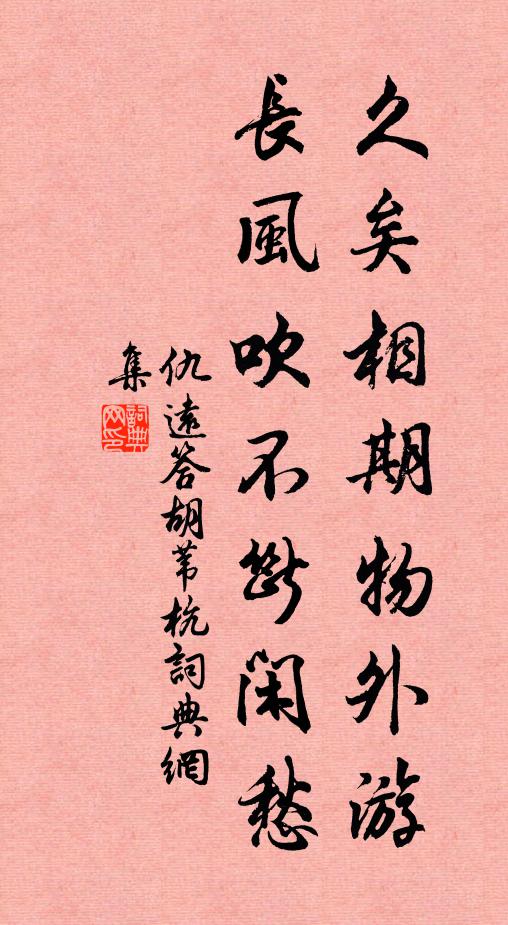 久矣相期物外游
長風吹不斷閑愁
仇遠答胡葦杭詞典網
集
詞典網印